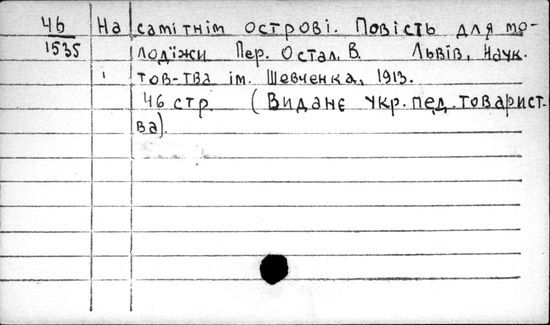 46 На самітнім острові. Повість для мо-
1535 лодїжи Пер. Остап. В. Львів, Наук.
тов-тва ім. Шевченка, 1913.
46 стр. (Виданє укр. пед. товарист-
ва).